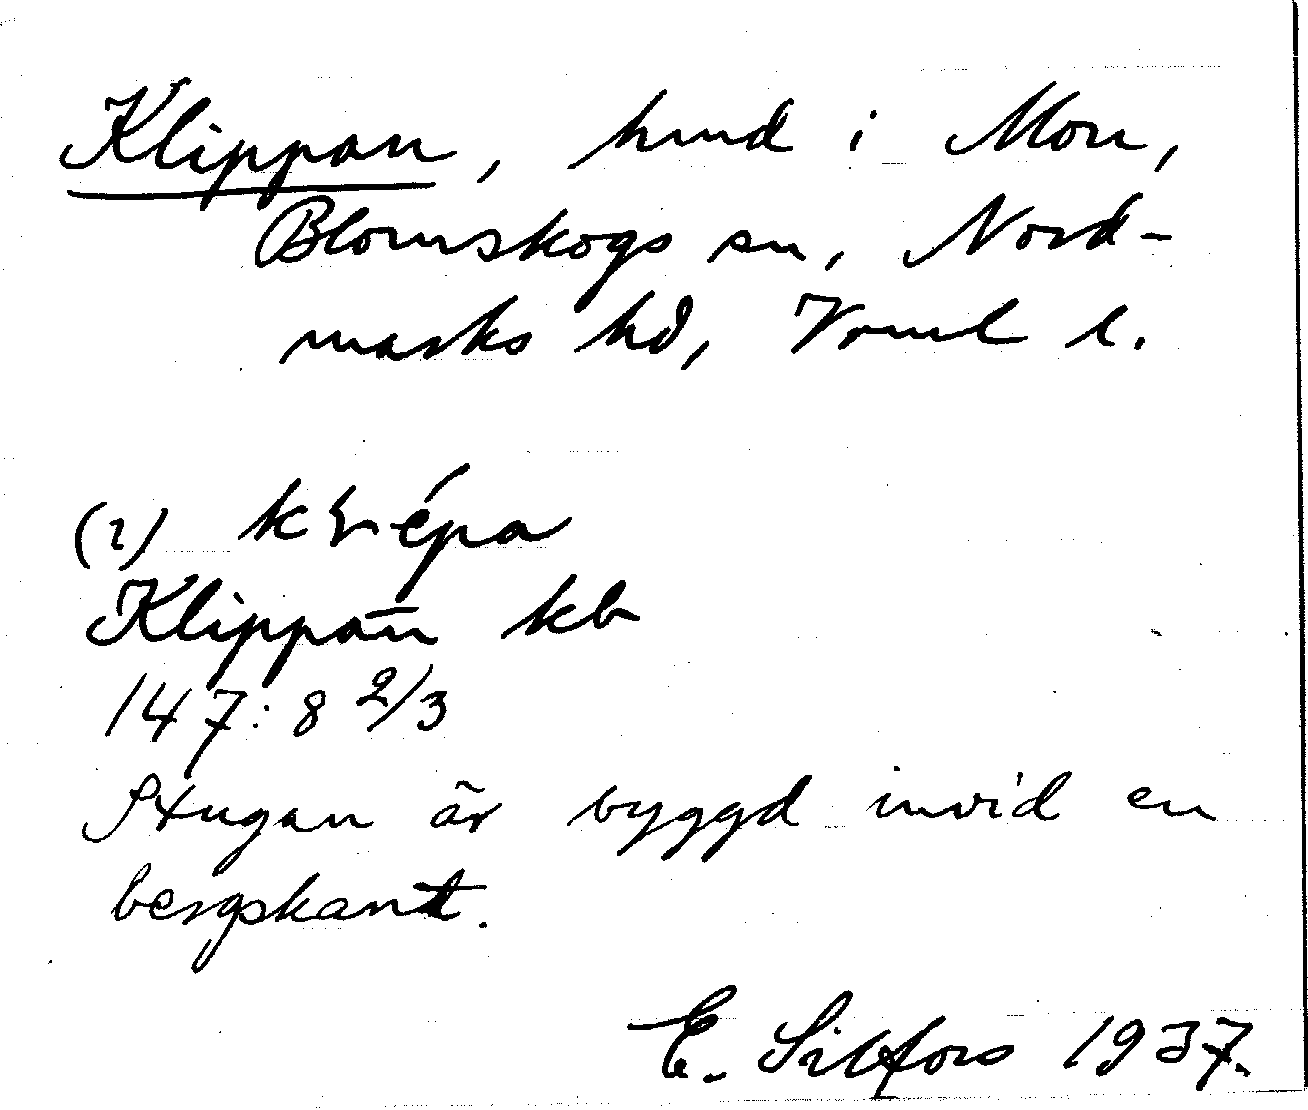 Klippan, hmd i Mon,
Blomskogs sn, Nord-
marks hd, Vrml l.
(i)
Klippan kb
147:8 2/3
Stugan är byggd invid en
bergskant.
E. Silfors 1937.